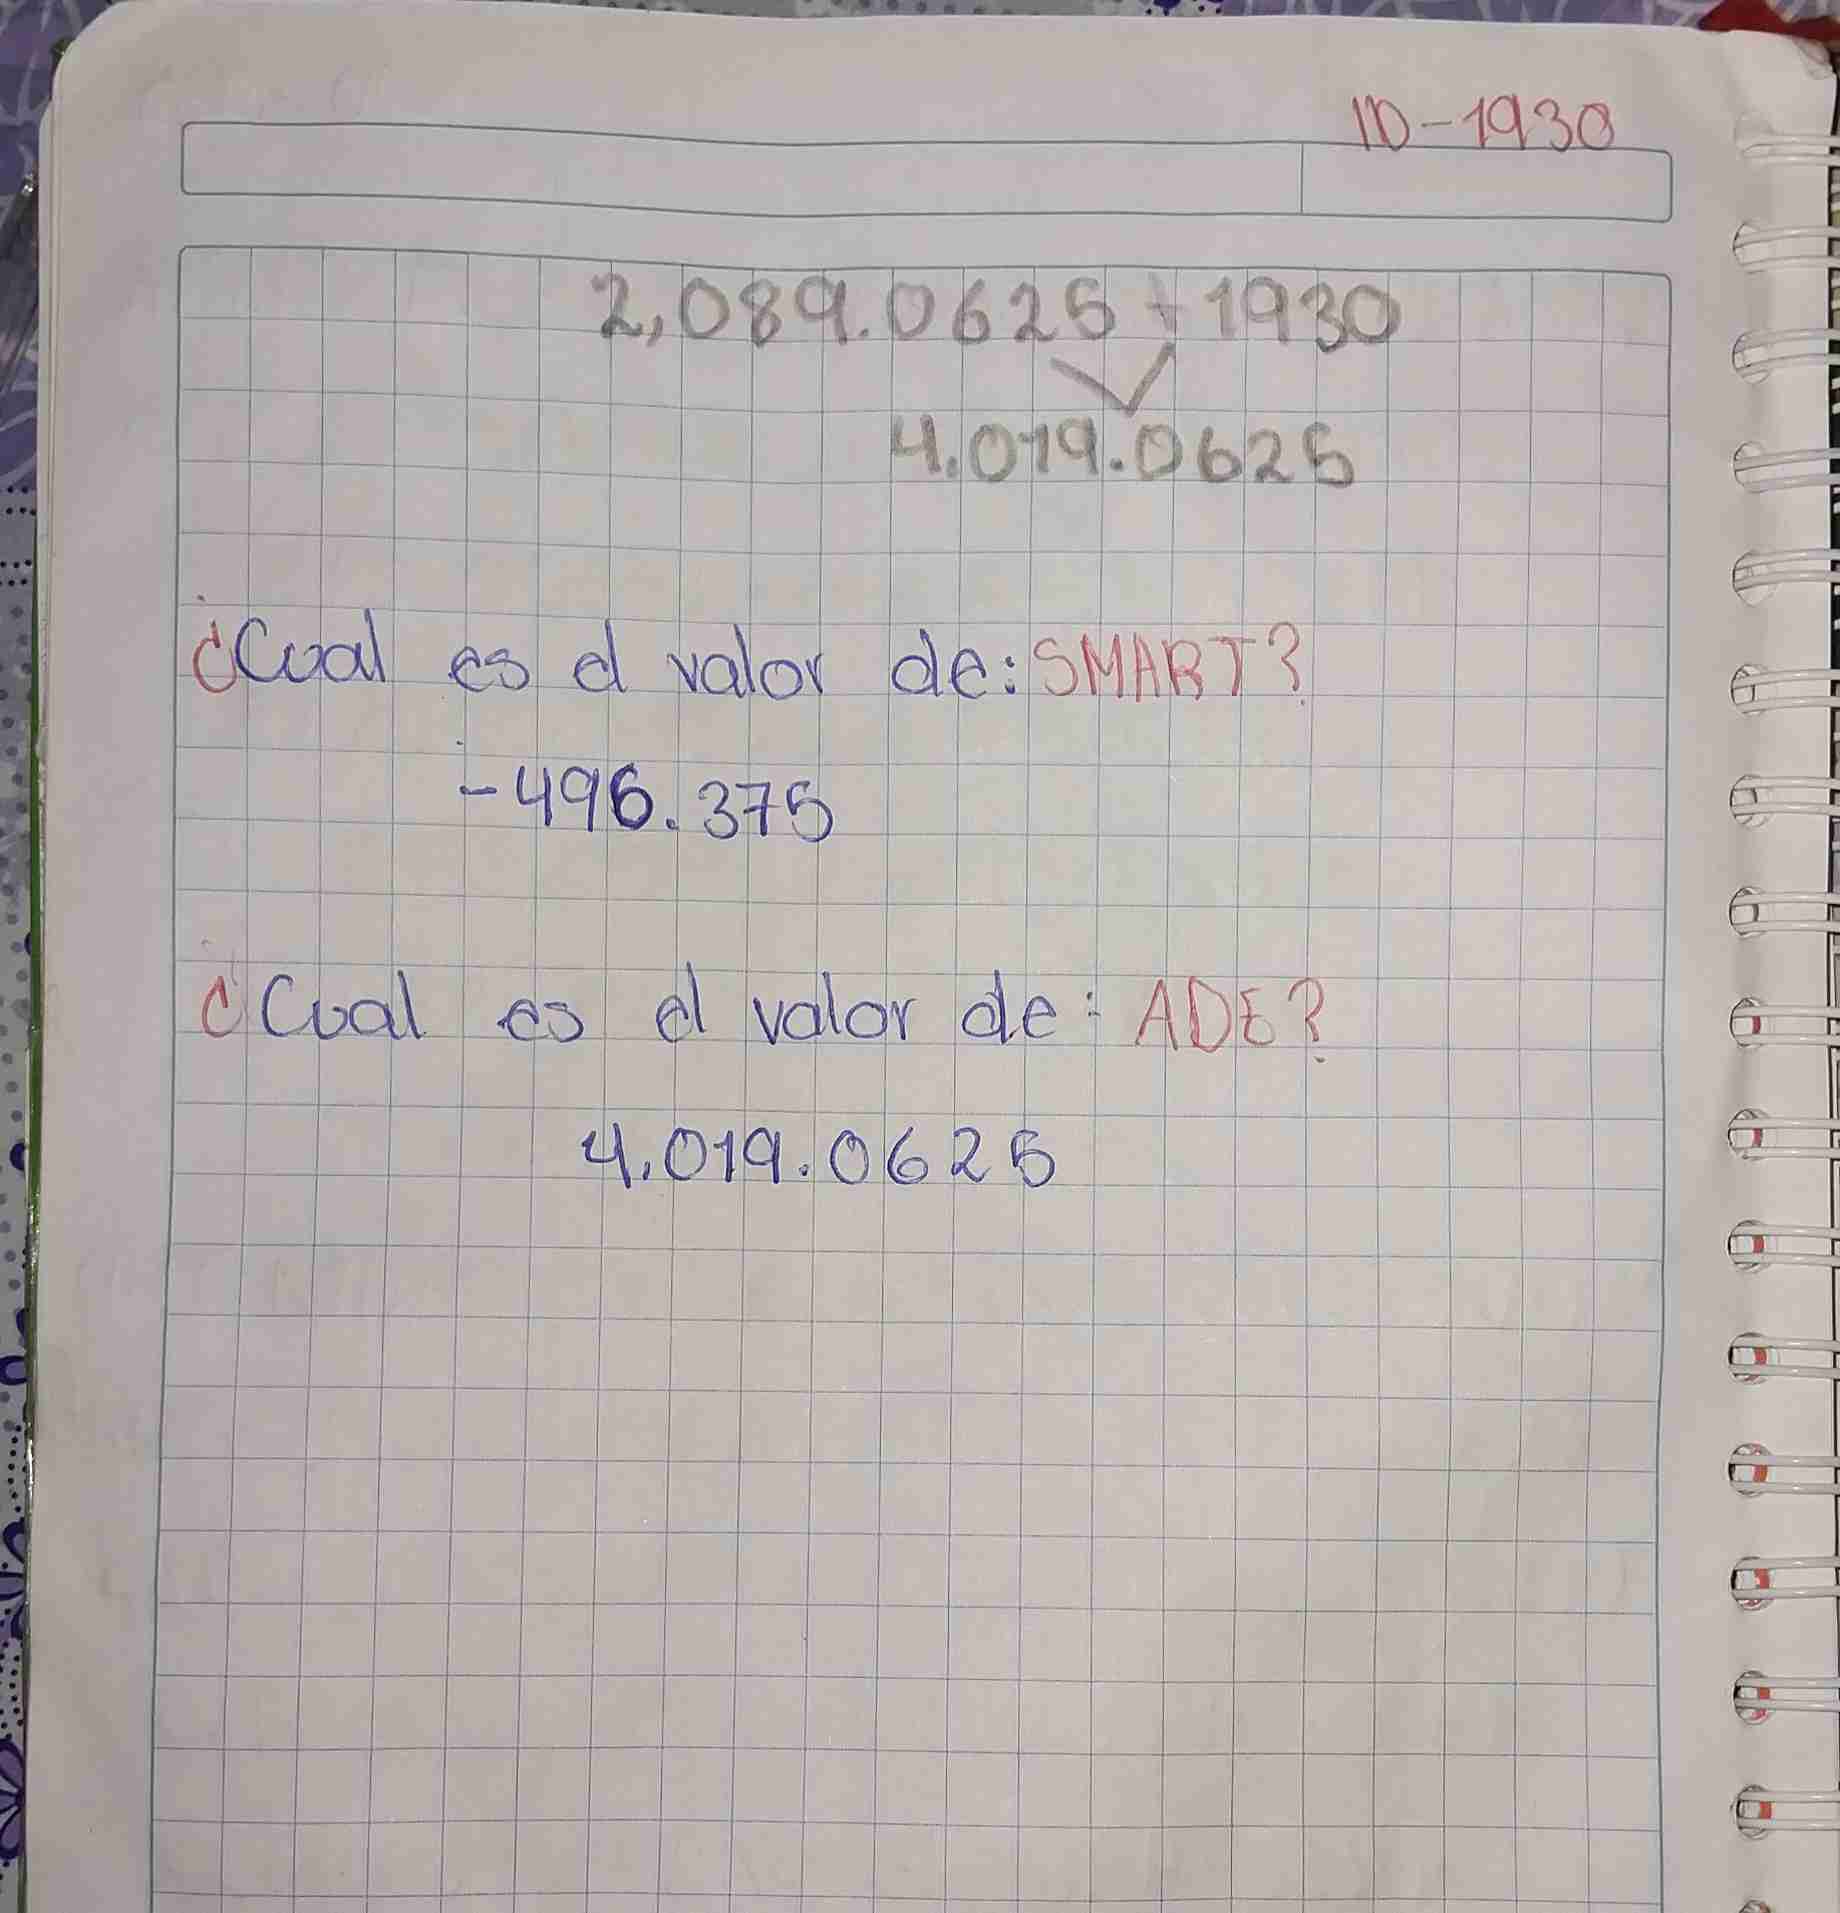 ID-1930
2,089.0625+1930
4.019.0625
¿Cual es el valor de: SMART?
-496.375
¿Cual es el valor de: ADE?
4.019.0625